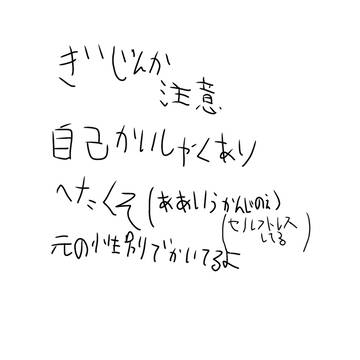 ぎいじんか
注意
自己かいしゃくあり
へたくそ(ああいうかんじのえ)
(セルフトレス
してる)
元の性別でかいてるよ